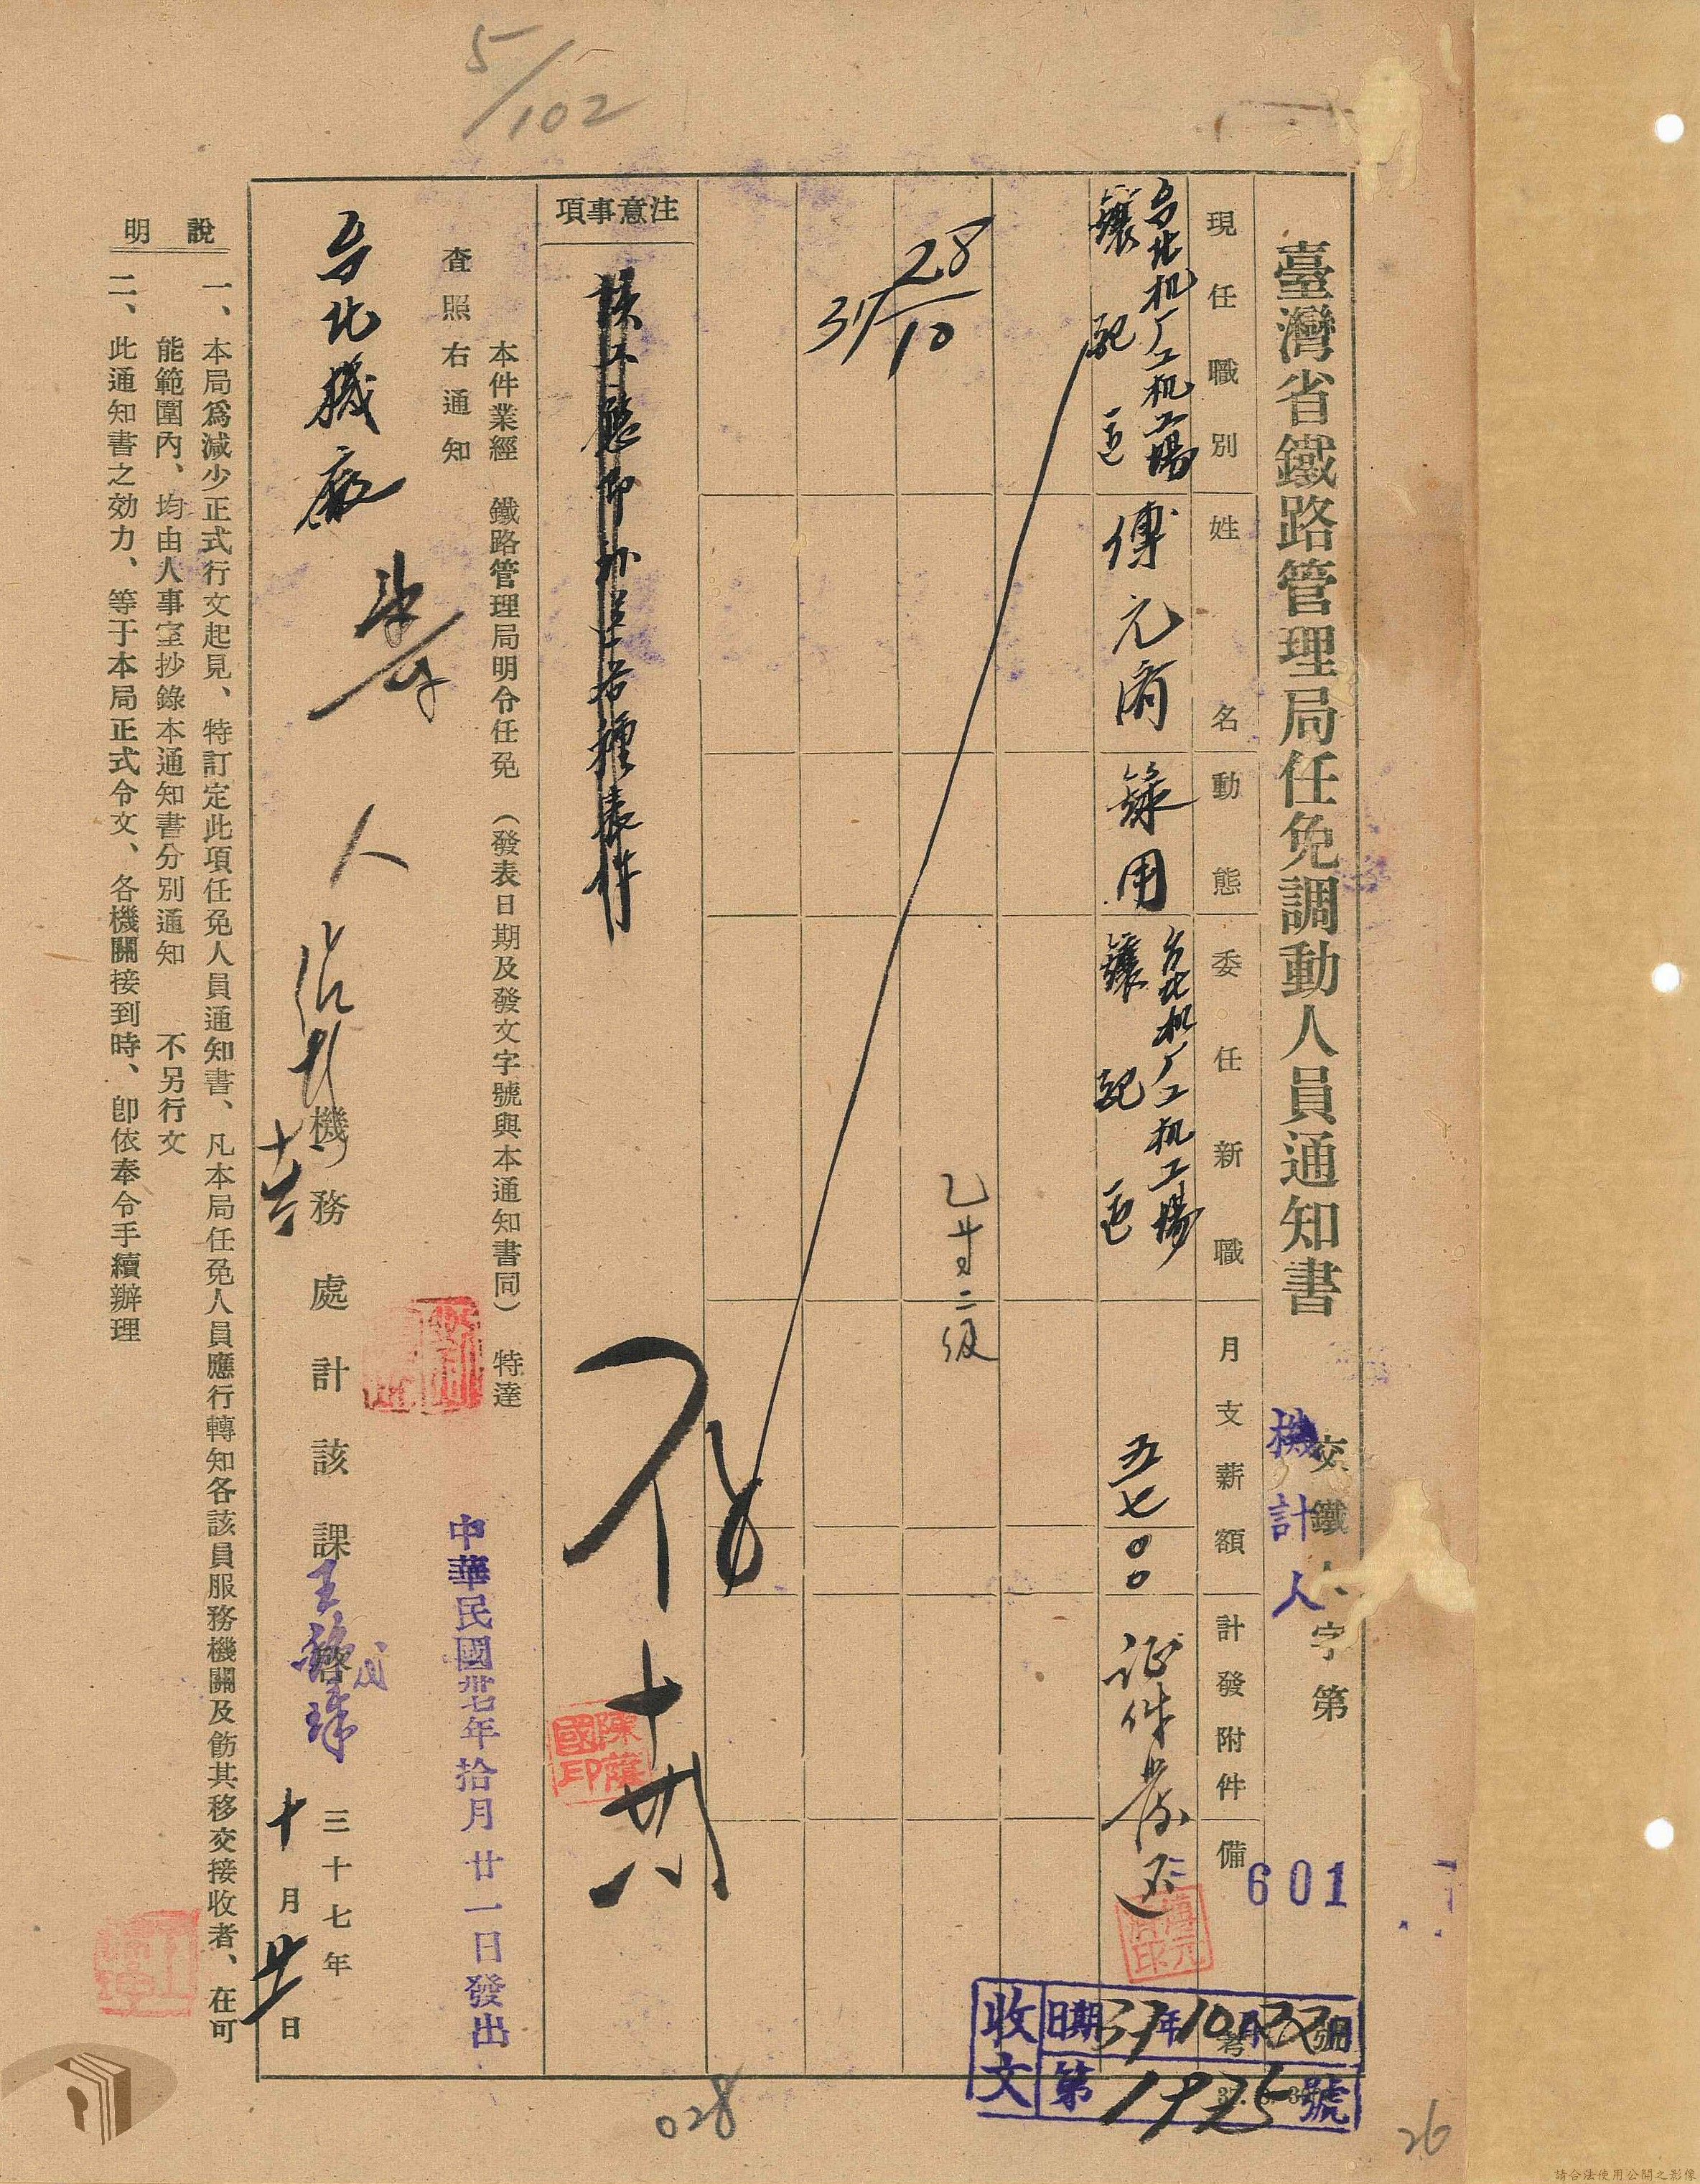 5/102
臺灣省鐵路管理局任免調動人員通知書
交鐵人字第
機計人
601
現任職別
姓名
動態
委任新職
月支薪額
計發附件
備考
台北机厂工机工場
傅元
錄用
台北机厂工机工場
五七〇〇
证件發还
28/10
37
乙廿二級
注意事項
該工應即補送各種表件
本件業經 鐵路管理局明令任免 (發表日期及發文字號與本通知書同) 特達
查照右通知
台北機廠
機務處計該課 啓
三十七年
十月廿一日
中華民國卅七年拾月廿一日發出
陳薩國印
說明
一、本局爲減少正式行文起見、特訂定此項任免人員通知書、凡本局任免人員應行轉知各該員服務機關及飭其移交接收者、在可
能範圍內、均由人事室抄錄本通知書分別通知 不另行文
二、此通知書之効力、等于本局正式令文、各機關接到時、卽依奉令手續辦理
收文
日期 37年10月22日
第1925號
028
26
請合法使用公開之影像